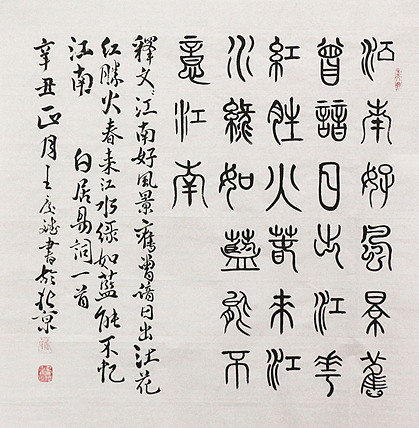 江南好風景舊
曾諳日出江花
紅胜火春來江
水綠如藍能不
意江南
釋文:江南好風景舊曾諳日出江花
紅勝火春来江水綠如藍能不忆
江南 白居易詞一首
辛丑正月王書於北京